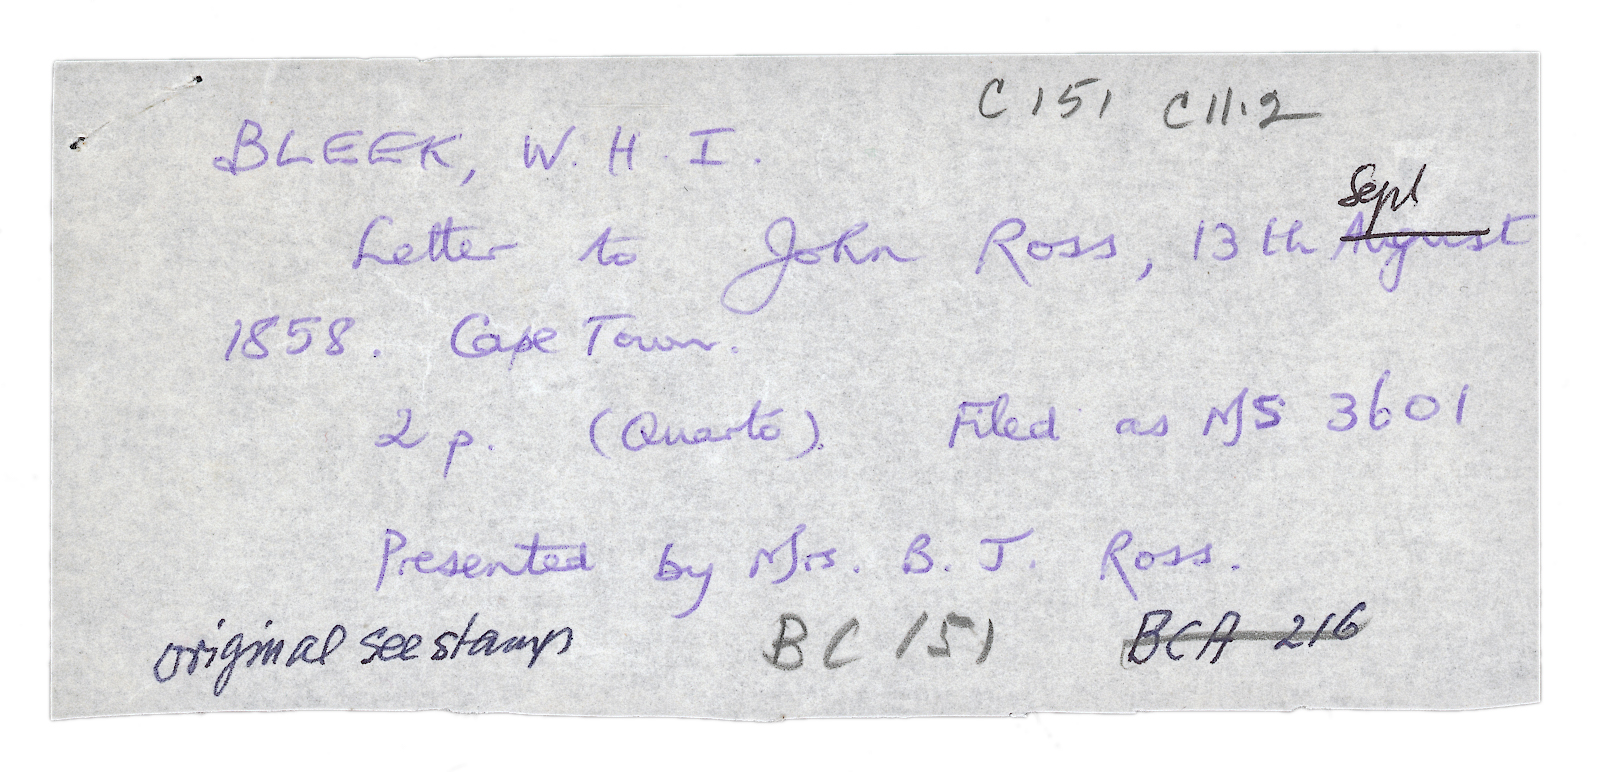 C 151 C11.2
BLEEK, W. H. I.
Sept
Letter to John Ross, 13th August
1858. Cape Town.
2 p. (Quarto). Filed as MS 3601
Presented by Mrs. B. J. Ross.
original see stamp BC 151 BCA 216